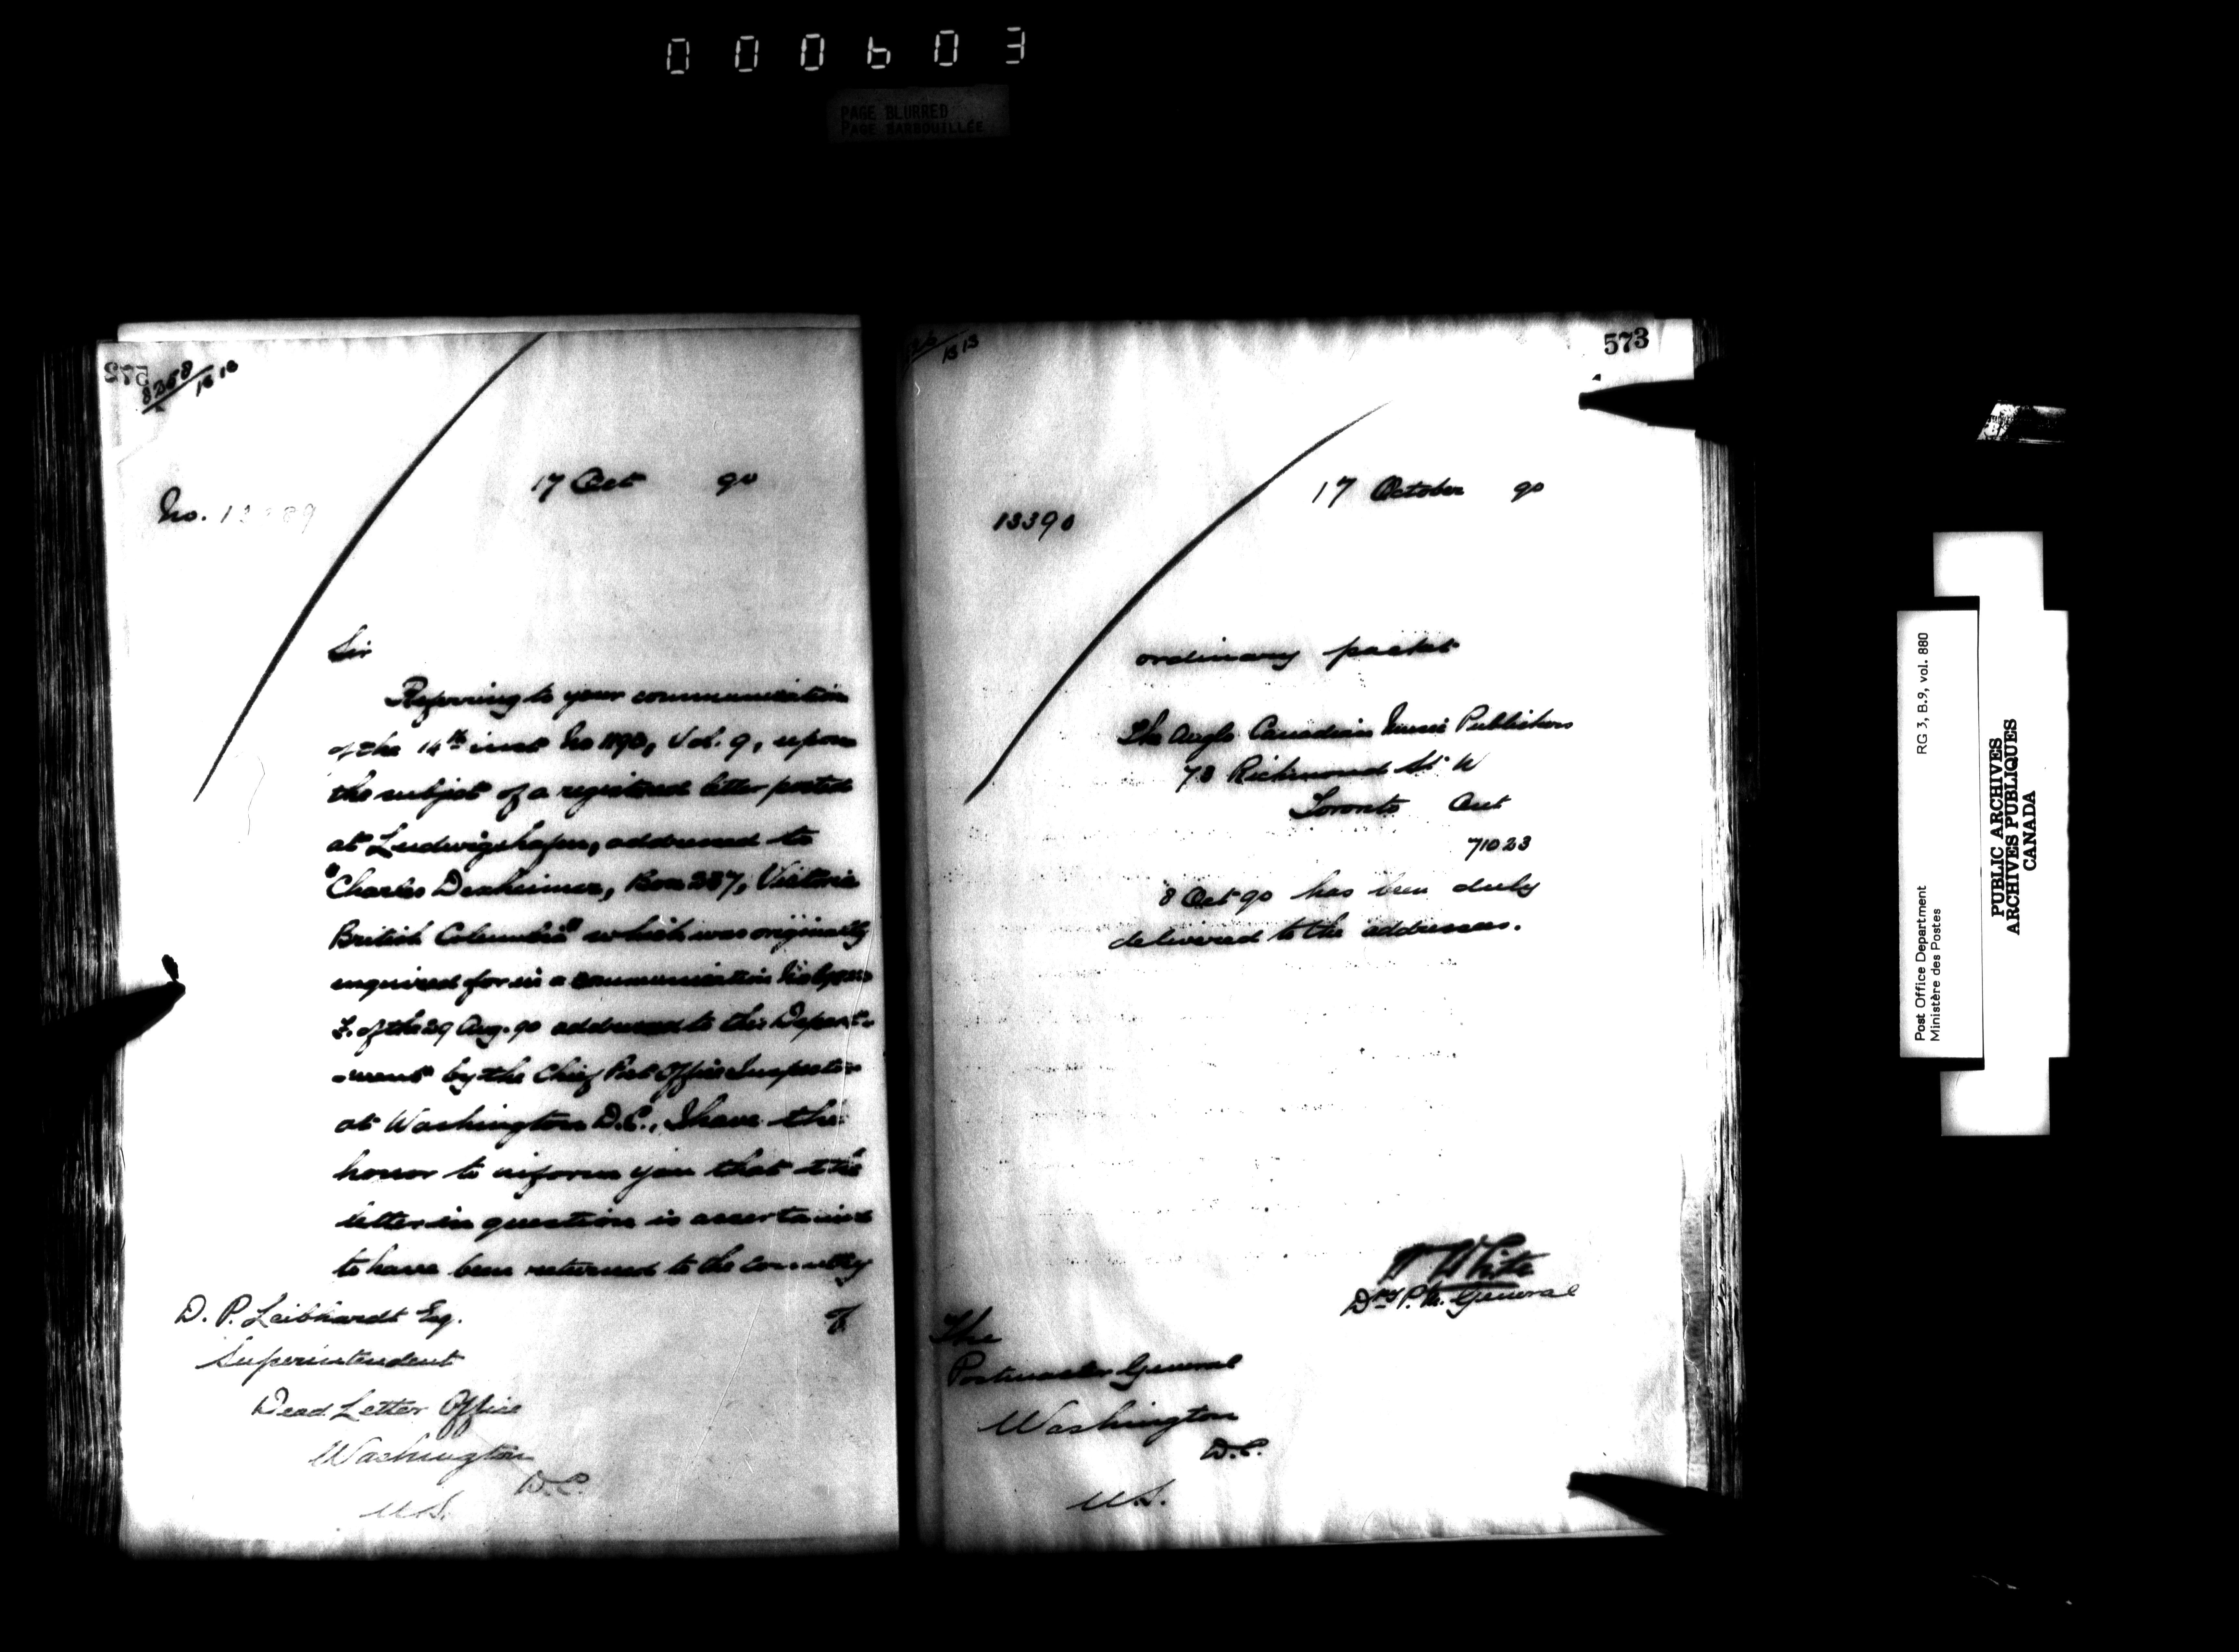 000603
PAGE BLURRED
PAGE BARBOUILLÉE
572
8258
17 Oct 90
No. 13389
Sir
Referring to your communication
of the 14th inst No 1190, Vol. 9, upon
the subject of a registered letter posted
at Ludwigshafen, addressed to
"Charles Dexheimer, Box 287, Victoria
British Columbia" which was originally
enquired for in a communication
F. of the 29 Aug. 90 addressed to this Depart-
-ment by the Chief Post Office Inspector
at Washington D.C., I have the
honor to inform you that the
letter in question is ascertained
to have been returned to the country
of
D. P. Leibhardt Esq.
Superintendent
Dead Letter Office
Washington
D.C.
U.S.
573
17 October 90
13390
ordinary packet
The Anglo Canadian Music Publishers
78 Richmond St W
Toronto Ont
71023
8 Oct 90 has been duly
delivered to the addressees.
W White
Dy P.M. General
The
Postmaster General
Washington
D.C.
U.S.
Post Office Department
Ministère des Postes
RG 3, B.9, vol. 880
PUBLIC ARCHIVES
ARCHIVES PUBLIQUES
CANADA